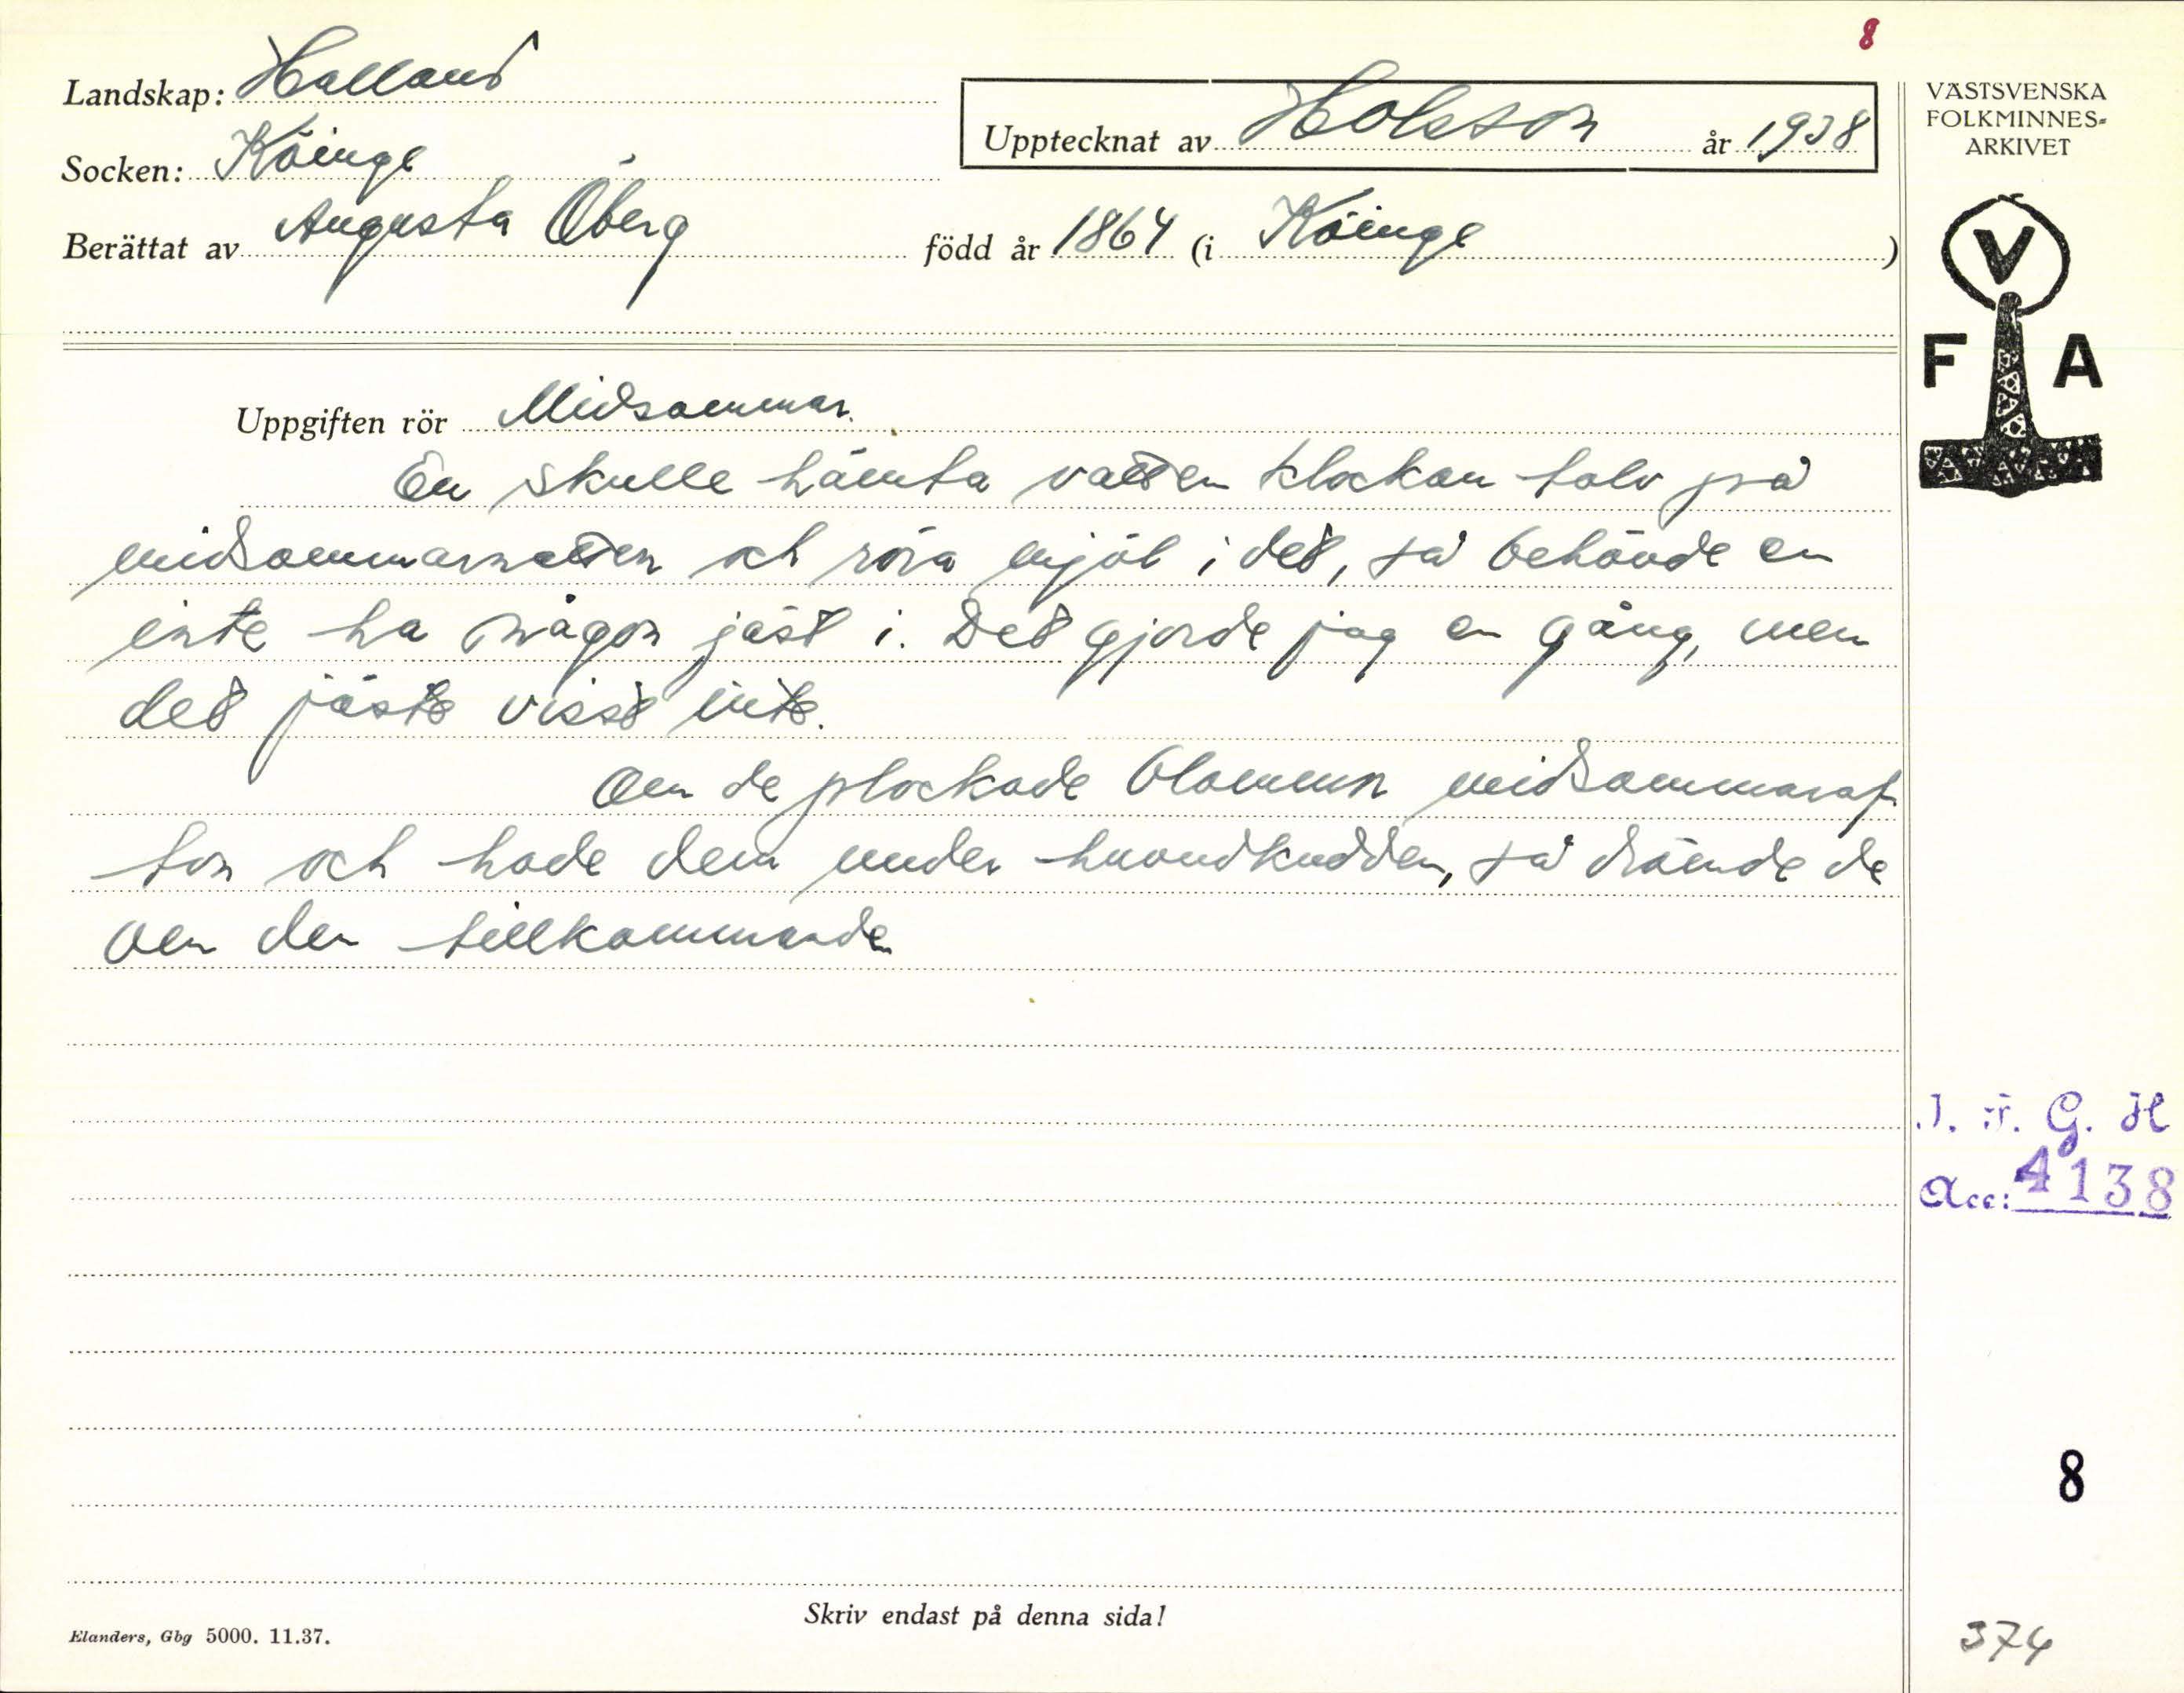 8
Landskap: Halland
Upptecknat av Holsson år 1938
Socken: Köinge
Berättat av Augusta Öberg född år 1864 (i Köinge)
Uppgiften rör Midsommar.
En skulle hämta vatten klockan tolv på
midsommarnatten och röra mjöl i det, så behövde en
inte ha någon jäst i. Det gjorde jag en gång, men
det jäste visst inte.
Om de plockade blommor midsommaraf
ton och hade dem under huvudkudden, så drömde de
om den tillkommande
Skriv endast på denna sida!
Elanders, Gbg 5000. 11.37.
VÄSTSVENSKA
FOLKMINNES-
ARKIVET
V
F A
I. F. G. H
Acc: 4138
8
374